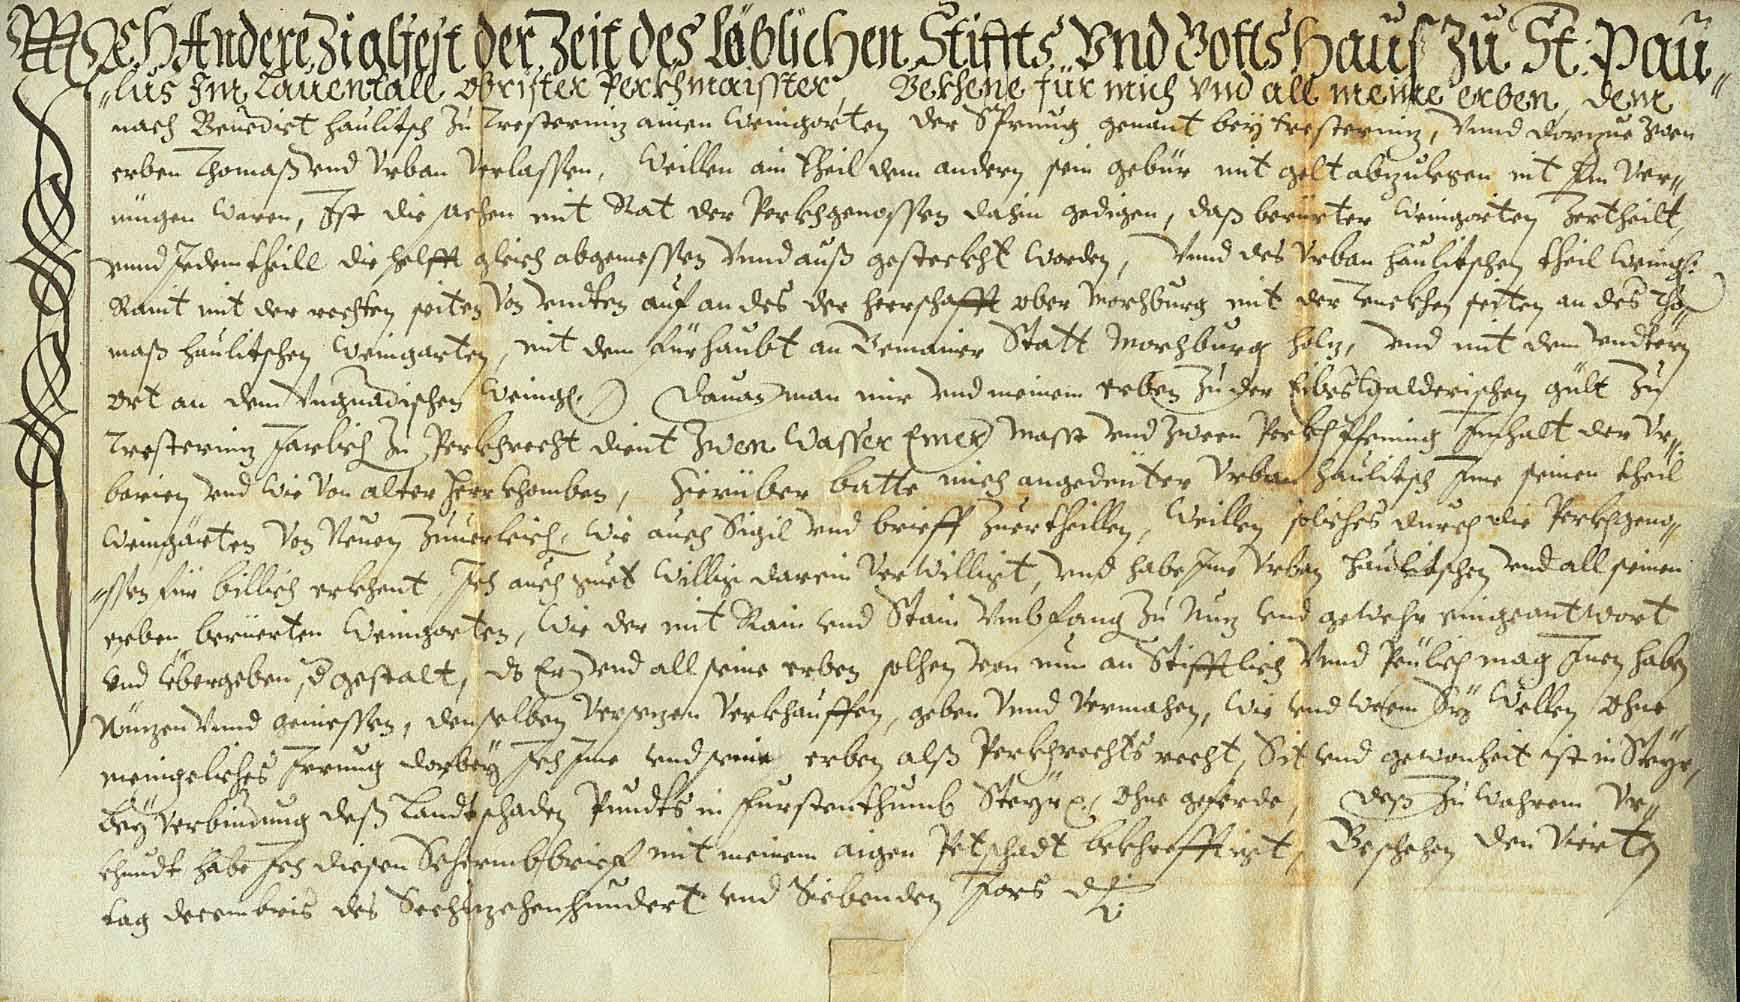 ICH Andere Ziglfest der Zeit des Löblichen Stiffts Vnd Gottshauß Zu St: Pau„
„lus Im Lauentall obrister Perkhmaisster, Bekhene für mich vnd all meine erben, dem
nach Benedict Haulitsch zu Tresterniz ainen Weingorten der Sprung genant bey tresterniz, Vnnd dorzue zwen
erben Thomaß vnd Vrban Verlassen, Weillen ain theil dem andern sein gebür mit gelt abzulegen nit Im Ver„
mügen waren, Ist die sachen mit Rat der Perkhgenossen dahin gedigen, daß berürter Weingorten Zertheilt,
vnnd Jedem theill die helfft gleich abgemessen Vnnd auß gesteckht worden, Vnnd des Vrban Haulitschen theil Weing:
Raint mit der rechten seiten Von vndten auf an des der Herrschafft ober Morchburg mit der Lenckhen seiten an des Tho„
maß Haulitschen Weingarten, mit dem fürhaubt an Gemainer Statt Morchburg holz, vnd mit dem vndtern
ort an dem Vngnadischen Weing: Dauon man mir vnd meinem erben zu der Eibeswalderischen gült zu
Tresterniz Jarlich zu Perkhrecht dient Zwen Wasser Emer Masst vnd zween Perkh Pfening Inhalt der Vr„
barien vnd wie von alter herr khomben, Hierüber batte mich angedeuter Vrban Haulitsch Ime seinen theil
Weingarten Von Neuen Zuuerleich, wie auch Sigil vnd brieff zuertheillen, Weillen soliches durch die Perkhgeno„
„ssen für billich erkhent, Ich auch guet Willig darein Verwilligt, vnd habe Ime Vrban Haulitschen vnd all seinen
erben berüerten Weingorten, wie der mit Rain vnd Stain Vmbfang zu Nuz vnd gewehr eingeantwort
vnd Übergeben, d gestalt, ds Er vnd all seine erben solhen von nun an Stifftlich Vnnd Peulich mag Inen haben
Nuzen Vnnd geniessen, denselben Versezen Verkhauffen, geben Vnnd Vermahen, wie vnd wem Sy wellen ohne
meingeliches Irrung dorbey Ich Ime vnd seine erben alß Perkhrechts recht, Sit vnd gewonheit ist in Steyr,
bey Verbindung deß Landtschaden Pundts in Furstenthumb Steyr ohne geferde, deß zu Wahrem Vr„
khundt habe Ich diesen Schermbbrief mit meinem aigen Petschadt bekhrefftigt, Beschehen den Vierten
tag decembris des Sechzehenhundert vnd Siebenden Jors